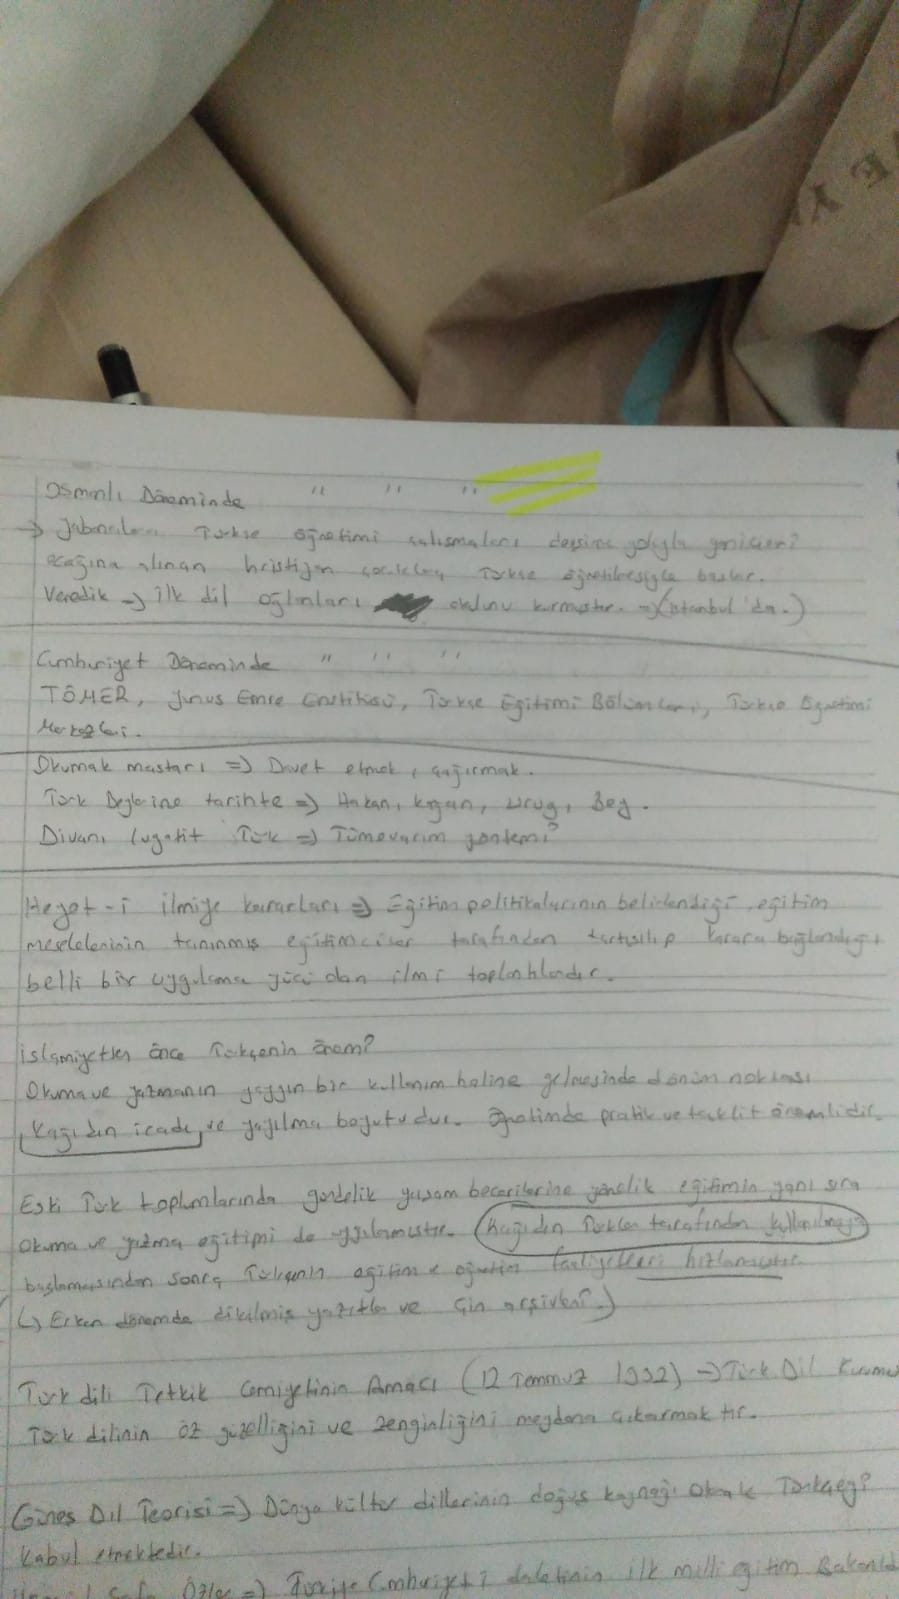 Osmanlı Döneminde " " "
→ Yabancılara Türkçe öğretimi çalışmaları devşirme yoluyla yeniçeri
ocağına alınan hristiyan çocuklara Türkçe öğretilmesiyle başlar.
Venedik → ilk dil oğlanları okulunu kurmuştur. → (İstanbul'da.)
Cumhuriyet Döneminde " " "
TÖMER, Yunus Emre Enstitüsü, Türkçe Eğitimi Bölümleri, Türkçe Öğretimi
Merkezleri.
Okumak mastarı => Davet etmek, çağırmak.
Türk Beylerine tarihte => Hakan, kağan, urug, Beg.
Divanı lugatit Türk => Tümevarım yöntemi
Heyet-i ilmiye kararları => Eğitim politikalarının belirlendiği, eğitim
meselelerinin tanınmış eğitimciler tarafından tartışılıp karara bağlandığı
belli bir uygulama gücü olan ilmi toplantılardır.
İslamiyetten önce Türkçenin önemi
Okuma ve yazmanın yaygın bir kullanım haline gelmesinde dönüm noktası
Kağıdın icadı ve yayılma boyutudur. Öğretimde pratik ve taklit önemlidir.
Eski Türk toplumlarında gündelik yaşam becerilerine yönelik eğitimin yanı sıra
okuma ve yazma eğitimi de uygulanmıştır. Kağıdın Türkler tarafından kullanılmaya
başlamasından sonra Türkçenin eğitim ve öğretim faaliyetleri hızlanmıştır.
(↳ Erken dönemde dikilmiş yazıtlar ve Çin arşivleri.)
Türk dili Tetkik Cemiyetinin Amacı (12 Temmuz 1932) → Türk Dil Kurumu
Türk dilinin öz güzelliğini ve zenginliğini meydana çıkarmaktır.
Güneş Dil Teorisi => Dünya kültür dillerinin doğuş kaynağı olarak Türkçeyi
kabul etmektedir.
Safa Özler => Türkiye Cumhuriyeti devletinin ilk milli eğitim